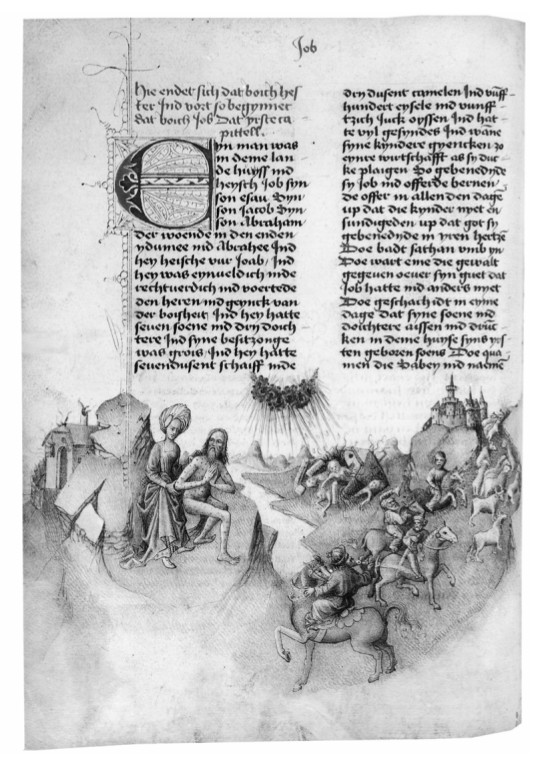 Job
Hie endet sich dat boich hes
ter Ind vort so begynnet
dat boich Job Dat yrste ca
pittell.
Eyn man was
in deme lan
de huyss ind
heysch Job syn
son esau Syn
son Jacob Syn
son Abraham
der woende in den enden
ydumee ind Abrahee Ind
hey heische vur Joab / Ind
hey was eynueldich inde
rechtuerdich ind voertede
den heren ind geynck van
der boisheit / Ind hey hatte
seuen soene ind dry doich
tere Ind syne besitzonge
was grois / Ind hey hatte
seuendusent schaiff inde
dry dusent camelen Ind vuff
hundert eysele ind vunff
tzich Juck ossen Ind hat
te vyl gesyndes Ind wane
syne kyndere gyencken zo
eynre wirtschafft as sy duc
ke plaigen So gebenedyde
sy Job ind offerde bernen
de offer in allen den dage
up dat die kynder nyet en
sundigeden up dat got sy
gebenedyde in yren hertze
Doe badt sathan vmb yn
Doe wart eme die gewalt
gegeuen oeuer syn guet dat
Job hatte ind anders nyet
Doe geschach idt in eyme
dage dat syne soene ind
doichtere aissen ind drunc
ken in deme huyse syns yrs
ten geboren soens Doe qua
men die Sabey ind naeme